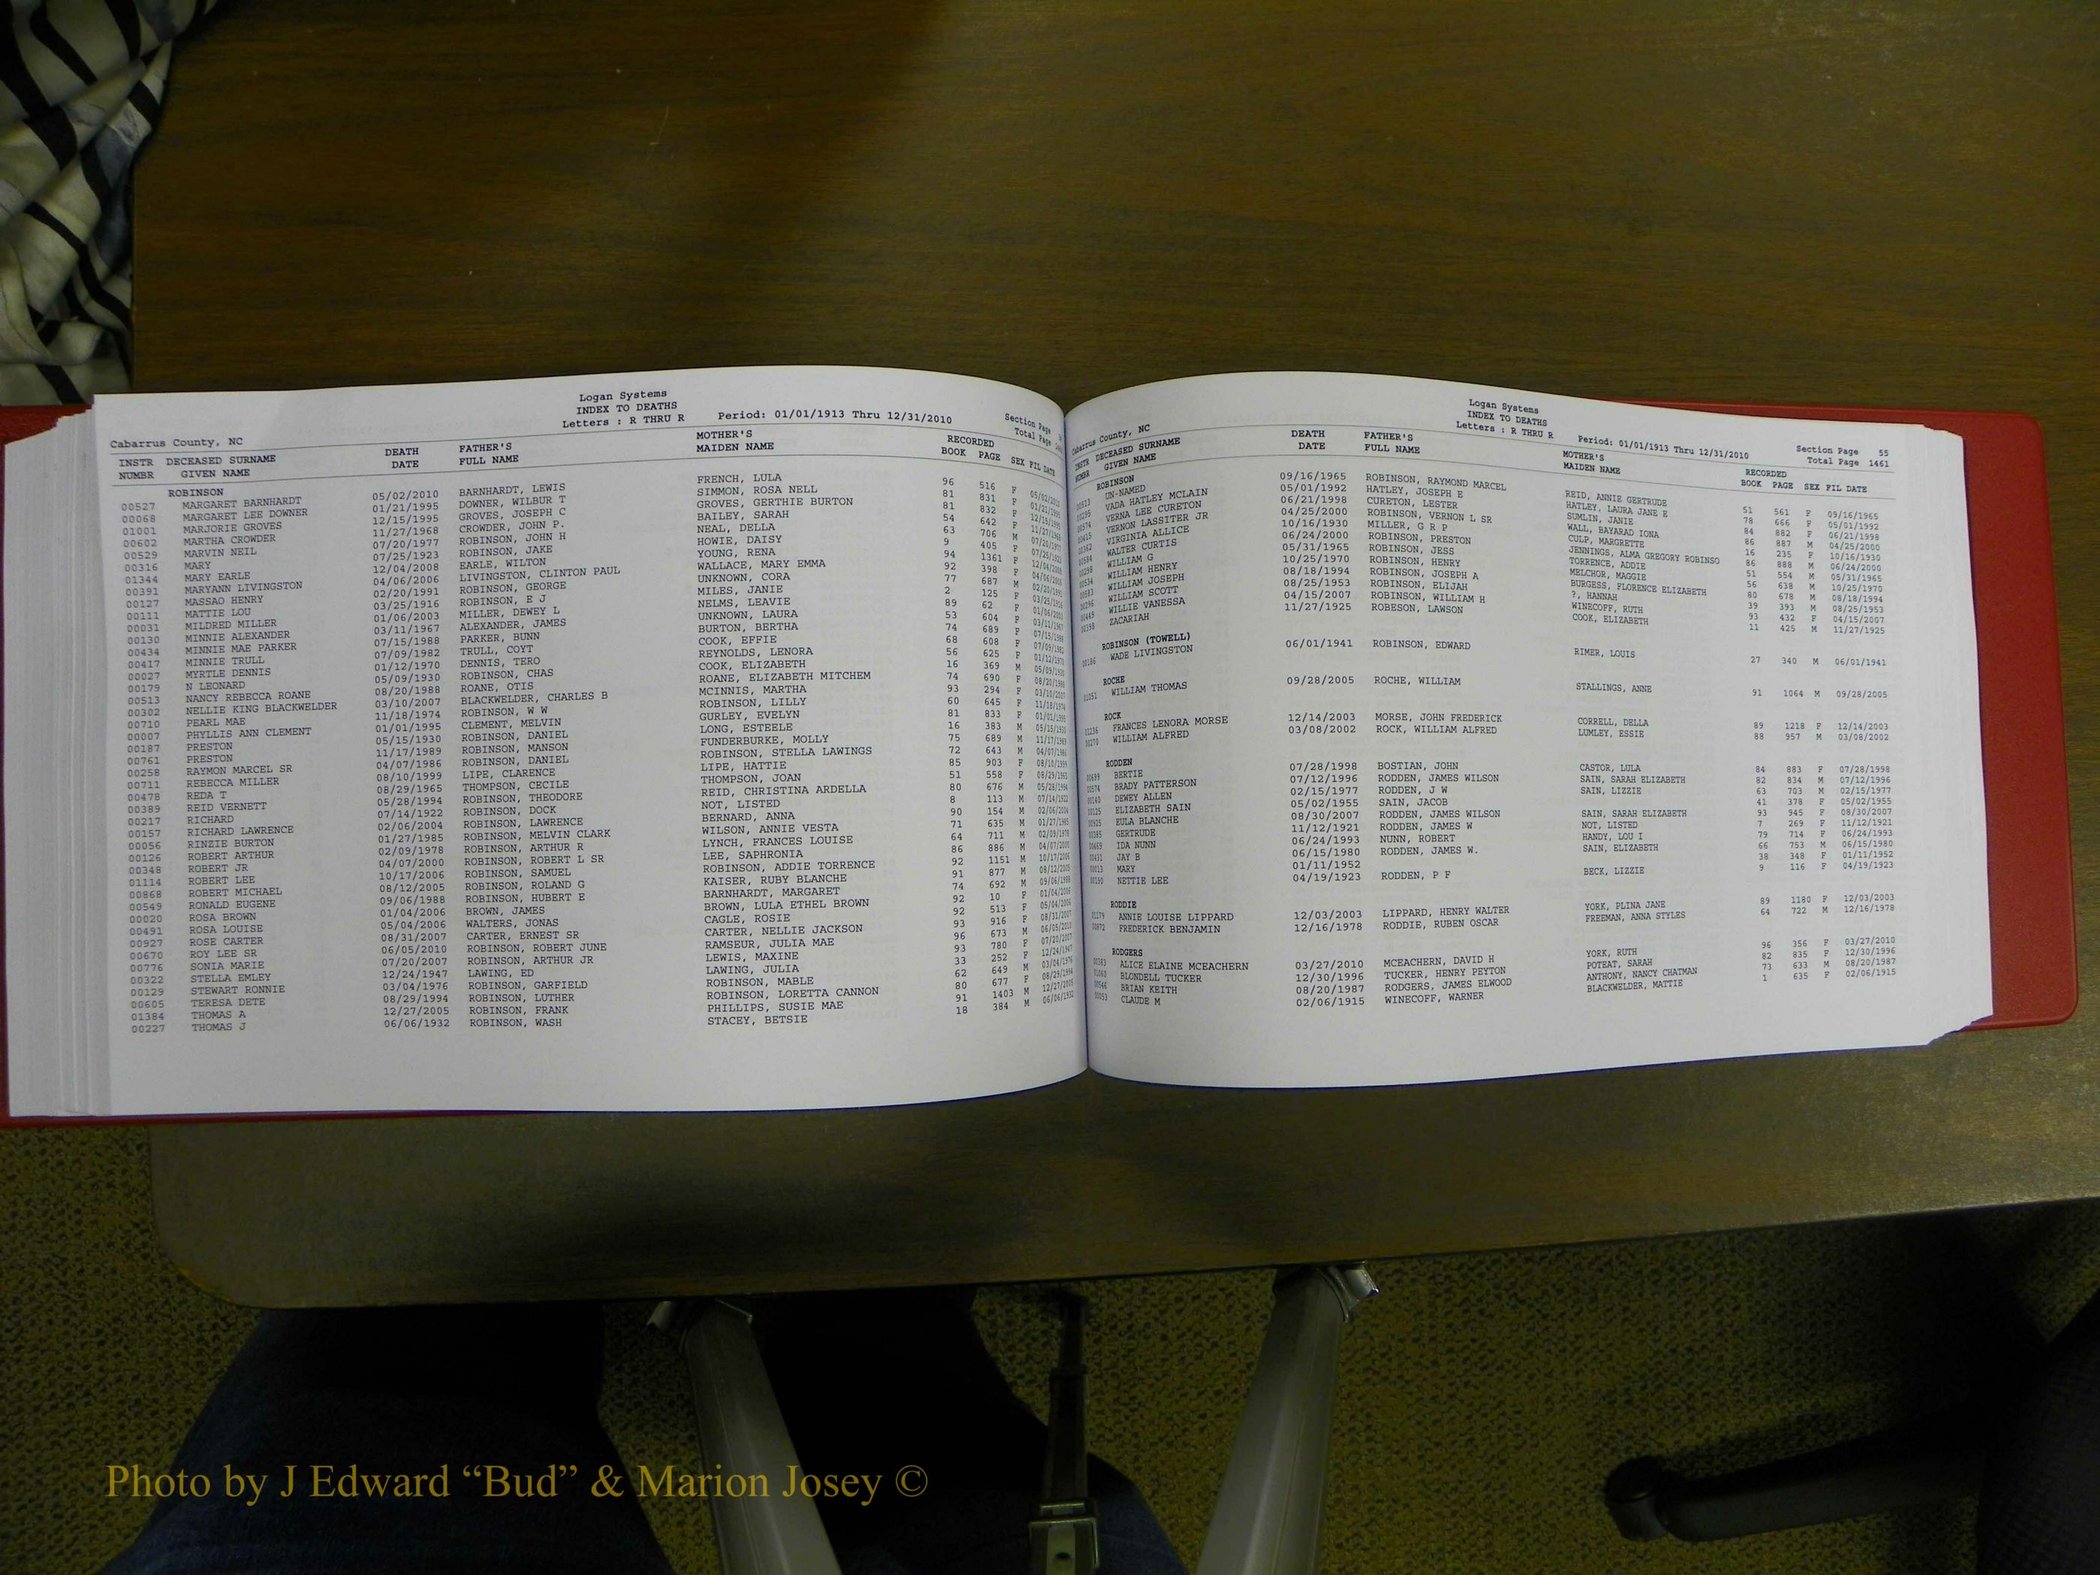 Logan Systems
INDEX TO DEATHS
Letters : R THRU R Period: 01/01/1913 Thru 12/31/2010 Section Page
Cabarrus County, NC Total Page
INSTR DECEASED SURNAME DEATH FATHER'S MOTHER'S RECORDED
NUMBR GIVEN NAME DATE FULL NAME MAIDEN NAME BOOK PAGE SEX FIL DATE
ROBINSON
00527 MARGARET BARNHARDT 05/02/2010 BARNHARDT, LEWIS FRENCH, LULA 96 516 F 05/02/2010
00068 MARGARET LEE DOWNER 01/21/1995 DOWNER, WILBUR T SIMMON, ROSA NELL 81 831 F 01/21/1995
01001 MARJORIE GROVES 12/15/1995 GROVES, JOSEPH C GROVES, GERTHIE BURTON 81 832 F 12/15/1995
00602 MARTHA CROWDER 11/27/1968 CROWDER, JOHN P. BAILEY, SARAH 54 642 F 11/27/1968
00529 MARVIN NEIL 07/20/1977 ROBINSON, JOHN H NEAL, DELLA 63 706 M 07/20/1977
00316 MARY 07/25/1923 ROBINSON, JAKE HOWIE, DAISY 9 405 F 07/25/1923
01344 MARY EARLE 12/04/2008 EARLE, WILTON YOUNG, RENA 94 1361 F 12/04/2008
00391 MARYANN LIVINGSTON 04/06/2006 LIVINGSTON, CLINTON PAUL WALLACE, MARY EMMA 92 398 F 04/06/2006
00127 MASSAO HENRY 02/20/1991 ROBINSON, GEORGE UNKNOWN, CORA 77 687 M 02/20/1991
00111 MATTIE LOU 03/25/1916 ROBINSON, E J MILES, JANIE 2 125 F 03/25/1916
00031 MILDRED MILLER 01/06/2003 MILLER, DEWEY L NELMS, LEAVIE 89 62 F 01/06/2003
00130 MINNIE ALEXANDER 03/11/1967 ALEXANDER, JAMES UNKNOWN, LAURA 53 604 F 03/11/1967
00434 MINNIE MAE PARKER 07/15/1988 PARKER, BUNN BURTON, BERTHA 74 689 F 07/15/1988
00417 MINNIE TRULL 07/09/1982 TRULL, COYT COOK, EFFIE 68 608 F 07/09/1982
00027 MYRTLE DENNIS 01/12/1970 DENNIS, TERO REYNOLDS, LENORA 56 625 F 01/12/1970
00179 N LEONARD 05/09/1930 ROBINSON, CHAS COOK, ELIZABETH 16 369 M 05/09/1930
00513 NANCY REBECCA ROANE 08/20/1988 ROANE, OTIS ROANE, ELIZABETH MITCHEM 74 690 F 08/20/1988
00302 NELLIE KING BLACKWELDER 03/10/2007 BLACKWELDER, CHARLES B MCINNIS, MARTHA 93 294 F 03/10/2007
00710 PEARL MAE 11/18/1974 ROBINSON, W W ROBINSON, LILLY 60 645 F 11/18/1974
00007 PHYLLIS ANN CLEMENT 01/01/1995 CLEMENT, MELVIN GURLEY, EVELYN 81 833 F 01/01/1995
00187 PRESTON 05/15/1930 ROBINSON, DANIEL LONG, ESTEELE 16 383 M 05/15/1930
00761 PRESTON 11/17/1989 ROBINSON, MANSON FUNDERBURKE, MOLLY 75 689 M 11/17/1989
00258 RAYMON MARCEL SR 04/07/1986 ROBINSON, DANIEL ROBINSON, STELLA LAWINGS 72 643 M 04/07/1986
00711 REBECCA MILLER 08/10/1999 LIPE, CLARENCE LIPE, HATTIE 85 903 F 08/10/1999
00478 REDA T 08/29/1965 THOMPSON, CECILE THOMPSON, JOAN 51 558 F 08/29/1965
00389 REID VERNETT 05/28/1994 ROBINSON, THEODORE REID, CHRISTINA ARDELLA 80 676 M 05/28/1994
00217 RICHARD 07/14/1922 ROBINSON, DOCK NOT, LISTED 8 113 M 07/14/1922
00157 RICHARD LAWRENCE 02/06/2004 ROBINSON, LAWRENCE BERNARD, ANNA 90 154 M 02/06/2004
00056 RINZIE BURTON 01/27/1985 ROBINSON, MELVIN CLARK WILSON, ANNIE VESTA 71 635 M 01/27/1985
00126 ROBERT ARTHUR 02/09/1978 ROBINSON, ARTHUR R LYNCH, FRANCES LOUISE 64 711 M 02/09/1978
00348 ROBERT JR 04/07/2000 ROBINSON, ROBERT L SR LEE, SAPHRONIA 86 886 M 04/07/2000
01114 ROBERT LEE 10/17/2006 ROBINSON, SAMUEL ROBINSON, ADDIE TORRENCE 92 1151 M 10/17/2006
00868 ROBERT MICHAEL 08/12/2005 ROBINSON, ROLAND G KAISER, RUBY BLANCHE 91 877 M 08/12/2005
00549 RONALD EUGENE 09/06/1988 ROBINSON, HUBERT E BARNHARDT, MARGARET 74 692 M 09/06/1988
00020 ROSA BROWN 01/04/2006 BROWN, JAMES BROWN, LULA ETHEL BROWN 92 10 F 01/04/2006
00491 ROSA LOUISE 05/04/2006 WALTERS, JONAS CAGLE, ROSIE 92 513 F 05/04/2006
00927 ROSE CARTER 08/31/2007 CARTER, ERNEST SR CARTER, NELLIE JACKSON 93 916 F 08/31/2007
00670 ROY LEE SR 06/05/2010 ROBINSON, ROBERT JUNE RAMSEUR, JULIA MAE 96 673 M 06/05/2010
00776 SONIA MARIE 07/20/2007 ROBINSON, ARTHUR JR LEWIS, MAXINE 93 780 F 07/20/2007
00322 STELLA EMLEY 12/24/1947 LAWING, ED LAWING, JULIA 33 252 F 12/24/1947
00129 STEWART RONNIE 03/04/1976 ROBINSON, GARFIELD ROBINSON, MABLE 62 649 M 03/04/1976
00605 TERESA DETE 08/29/1994 ROBINSON, LUTHER ROBINSON, LORETTA CANNON 80 677 F 08/29/1994
01384 THOMAS A 12/27/2005 ROBINSON, FRANK PHILLIPS, SUSIE MAE 91 1403 M 12/27/2005
00227 THOMAS J 06/06/1932 ROBINSON, WASH STACEY, BETSIE 18 384 M 06/06/1932
Logan Systems
INDEX TO DEATHS
Letters : R THRU R Period: 01/01/1913 Thru 12/31/2010 Section Page 55
Cabarrus County, NC Total Page 1461
INSTR DECEASED SURNAME DEATH FATHER'S MOTHER'S RECORDED
NUMBR GIVEN NAME DATE FULL NAME MAIDEN NAME BOOK PAGE SEX FIL DATE
ROBINSON
00513 UN-NAMED 09/16/1965 ROBINSON, RAYMOND MARCEL REID, ANNIE GERTRUDE 51 561 F 09/16/1965
00295 VADA HATLEY MCLAIN 05/01/1992 HATLEY, JOSEPH E HATLEY, LAURA JANE E 78 666 F 05/01/1992
00574 VERNA LEE CURETON 06/21/1998 CURETON, LESTER SUMLIN, JANIE 84 882 F 06/21/1998
00415 VERNON LASSITER JR 04/25/2000 ROBINSON, VERNON L SR WALL, BAYARAD IONA 86 887 M 04/25/2000
00362 VIRGINIA ALLICE 10/16/1930 MILLER, G R P CULP, MARGRETTE 16 235 F 10/16/1930
00584 WALTER CURTIS 06/24/2000 ROBINSON, PRESTON JENNINGS, ALMA GREGORY ROBINSO 86 888 M 06/24/2000
00298 WILLIAM G 05/31/1965 ROBINSON, JESS TORRENCE, ADDIE 51 554 M 05/31/1965
00534 WILLIAM HENRY 10/25/1970 ROBINSON, HENRY MELCHOR, MAGGIE 56 638 M 10/25/1970
00583 WILLIAM JOSEPH 08/18/1994 ROBINSON, JOSEPH A BURGESS, FLORENCE ELIZABETH 80 678 M 08/18/1994
00296 WILLIAM SCOTT 08/25/1953 ROBINSON, ELIJAH ?, HANNAH 39 393 M 08/25/1953
00449 WILLIE VANESSA 04/15/2007 ROBINSON, WILLIAM H WINECOFF, RUTH 93 432 F 04/15/2007
00398 ZACARIAH 11/27/1925 ROBESON, LAWSON COOK, ELIZABETH 11 425 M 11/27/1925
ROBINSON (TOWELL)
00186 WADE LIVINGSTON 06/01/1941 ROBINSON, EDWARD RIMER, LOUIS 27 340 M 06/01/1941
ROCHE
01051 WILLIAM THOMAS 09/28/2005 ROCHE, WILLIAM STALLINGS, ANNE 91 1064 M 09/28/2005
ROCK
01236 FRANCES LENORA MORSE 12/14/2003 MORSE, JOHN FREDERICK CORRELL, DELLA 89 1218 F 12/14/2003
00270 WILLIAM ALFRED 03/08/2002 ROCK, WILLIAM ALFRED LUMLEY, ESSIE 88 957 M 03/08/2002
RODDEN
00699 BERTIE 07/28/1998 BOSTIAN, JOHN CASTOR, LULA 84 883 F 07/28/1998
00574 BRADY PATTERSON 07/12/1996 RODDEN, JAMES WILSON SAIN, SARAH ELIZABETH 82 834 M 07/12/1996
00140 DEWEY ALLEN 02/15/1977 RODDEN, J W SAIN, LIZZIE 63 703 M 02/15/1977
00125 ELIZABETH SAIN 05/02/1955 SAIN, JACOB 41 378 F 05/02/1955
00925 EULA BLANCHE 08/30/2007 RODDEN, JAMES WILSON SAIN, SARAH ELIZABETH 93 945 F 08/30/2007
00385 GERTRUDE 11/12/1921 RODDEN, JAMES W NOT, LISTED 7 269 F 11/12/1921
00469 IDA NUNN 06/24/1993 NUNN, ROBERT HANDY, LOU I 79 714 F 06/24/1993
00431 JAY B 06/15/1980 RODDEN, JAMES W. SAIN, ELIZABETH 66 753 M 06/15/1980
00013 MARY 01/11/1952 38 348 F 01/11/1952
00190 NETTIE LEE 04/19/1923 RODDEN, P F BECK, LIZZIE 9 116 F 04/19/1923
RODDIE
01179 ANNIE LOUISE LIPPARD 12/03/2003 LIPPARD, HENRY WALTER YORK, PLINA JANE 89 1180 F 12/03/2003
00872 FREDERICK BENJAMIN 12/16/1978 RODDIE, RUBEN OSCAR FREEMAN, ANNA STYLES 64 722 M 12/16/1978
RODGERS
00383 ALICE ELAINE MCEACHERN 03/27/2010 MCEACHERN, DAVID H YORK, RUTH 96 356 F 03/27/2010
01060 BLONDELL TUCKER 12/30/1996 TUCKER, HENRY PEYTON POTEAT, SARAH 82 835 F 12/30/1996
00546 BRIAN KEITH 08/20/1987 RODGERS, JAMES ELWOOD ANTHONY, NANCY CHATMAN 73 633 M 08/20/1987
00053 CLAUDE M 02/06/1915 WINECOFF, WARNER BLACKWELDER, MATTIE 1 635 F 02/06/1915
Photo by J Edward “Bud” & Marion Josey ©